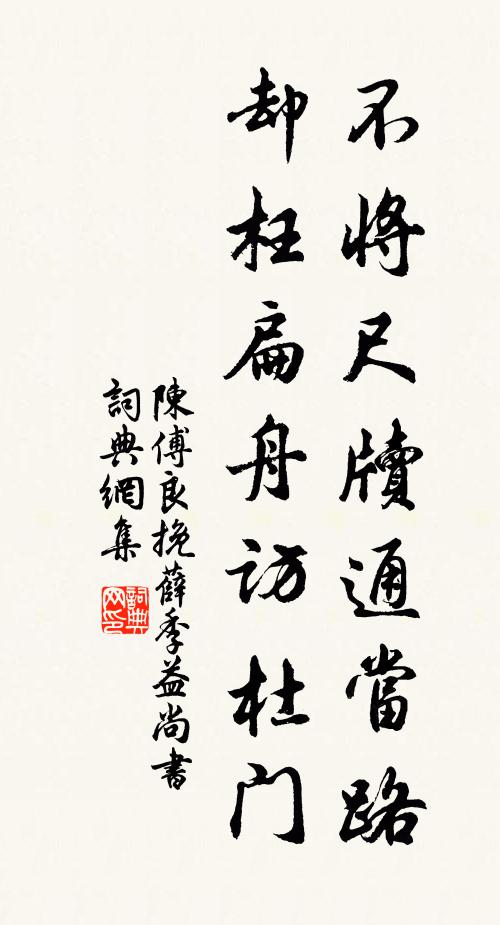 不將尺牘通當路
却枉扁舟访杜门
陳傅良挽薛季益尚書
詞典網集
詞典网印